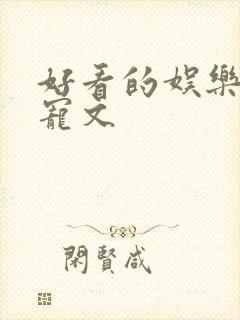 好看的娱樂
寵文
閑賢咸